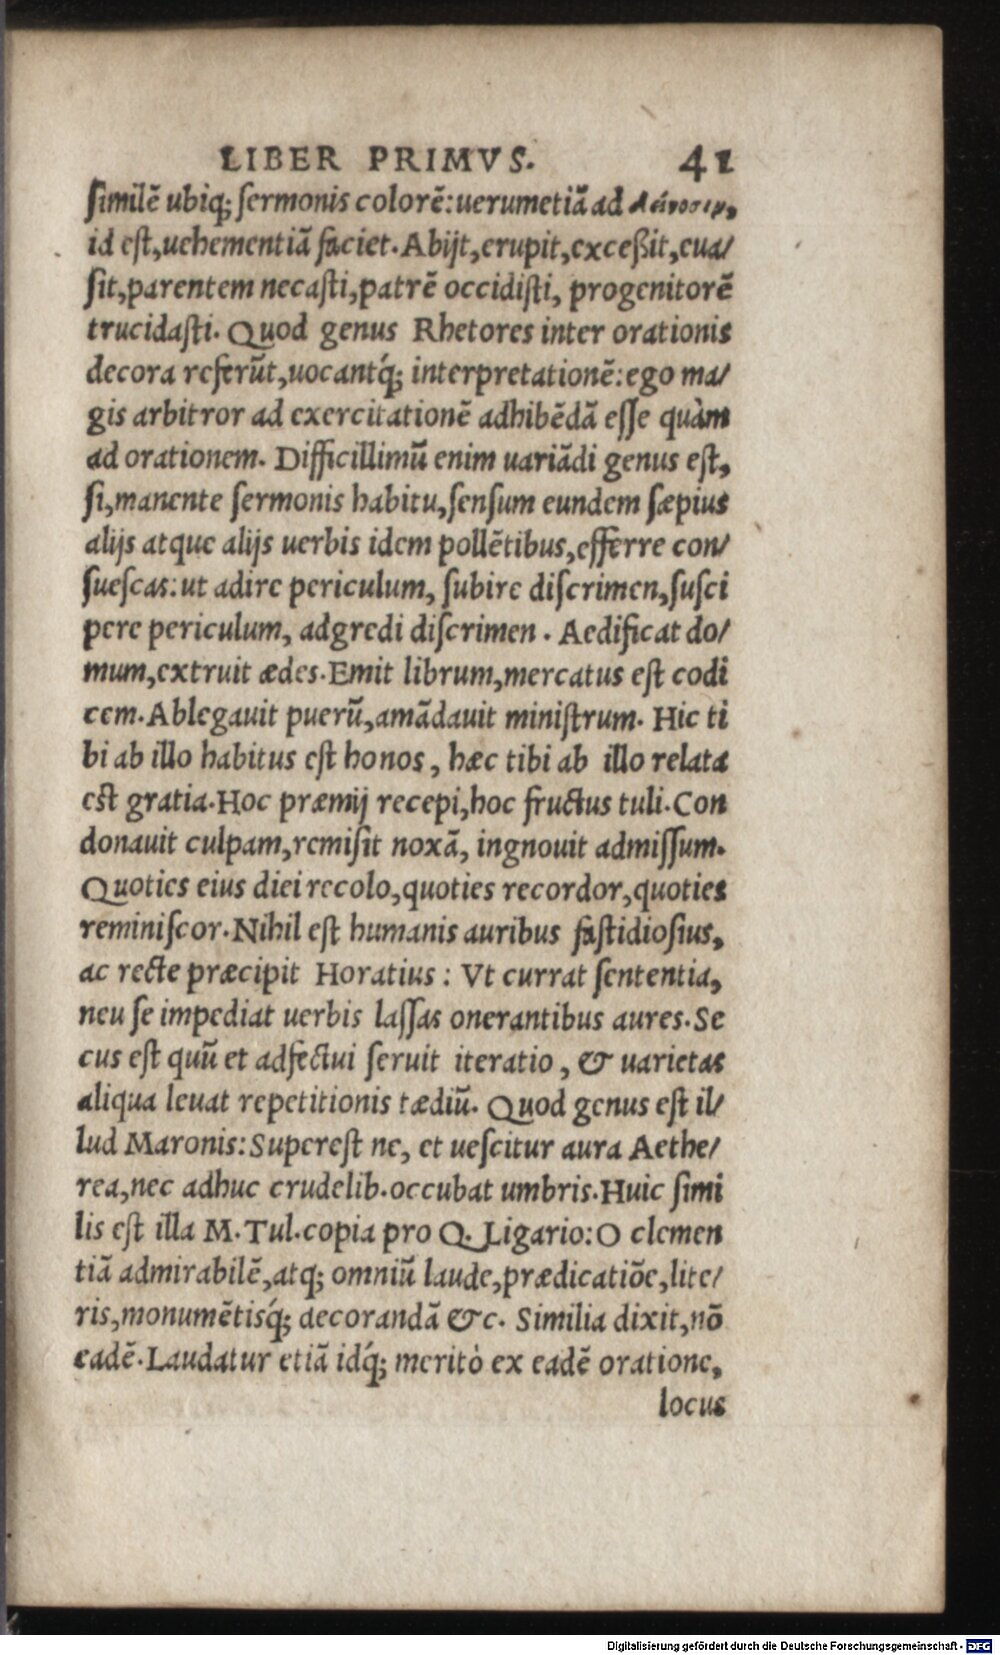 LIBER PRIMVS. 41
similē ubiq; sermonis colorē: uerumetiā ad δείνοσιν,
id est, uehementiā faciet. Abijt, erupit, exceßit, eua/
sit, parentem necasti, patrē occidisti, progenitorē
trucidasti. Quod genus Rhetores inter orationis
decora referūt, uocantq́; interpretationē: ego ma/
gis arbitror ad exercitationē adhibēdā esse quàm
ad orationem. Difficillimū enim uariādi genus est,
si, manente sermonis habitu, sensum eundem sæpius
alijs atque alijs uerbis idem pollētibus, efferre con/
suescas: ut adire periculum, subire discrimen, susci
pere periculum, adgredi discrimen. Aedificat do/
mum, extruit ædes. Emit librum, mercatus est codi
cem. Ablegauit puerū, amādauit ministrum. Hic ti
bi ab illo habitus est honos, hæc tibi ab illo relata
est gratia. Hoc præmij recepi, hoc fructus tuli. Con
donauit culpam, remisit noxā, ingnouit admissum.
Quoties eius diei recolo, quoties recordor, quoties
reminiscor. Nihil est humanis auribus fastidiosius,
ac recte præcipit Horatius: Vt currat sententia,
neu se impediat uerbis lassas onerantibus aures. Se
cus est quū et adfectui seruit iteratio, & uarietas
aliqua leuat repetitionis tædiū. Quod genus est il/
lud Maronis: Superest ne, et uescitur aura Aethe/
rea, nec adhuc crudelib. occubat umbris. Huic simi
lis est illa M. Tul. copia pro Q. Ligario: O clemen
tiā admirabilē, atq; omniū laude, prædicatiōe, lite/
ris, monumētisq́; decorandā &c. Similia dixit, nō
eadē. Laudatur etiā idq́; meritò ex eadē oratione,
locus
Digitalisierung gefördert durch die Deutsche Forschungsgemeinschaft - DFG